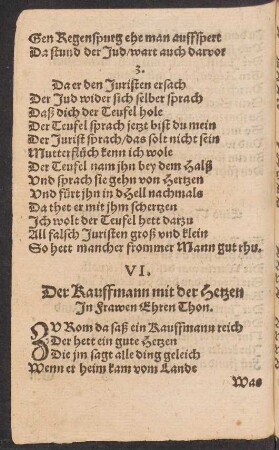 Gen Regenspurg ehe man auffspert
Da stund der Jud/wart auch darvor
3.
Da er den Juristen ersach
Der Jud wider sich selber sprach
Daß dich der Teufel hole
Der Teufel sprach jetzt bist du mein
Der Jurist sprach/das solt nicht sein
Mutterflüch kenn ich wole
Der Teufel nam jhn bey dem Halß
Vnd sprach sie gehn von Hertzen
Vnd fürt jhn in dHell nachmals
Da thet er mit jhm schertzen
Ich wolt der Teufel hett darzu
All falsch Juristen groß vnd klein
So hett mancher frommer Mann gut rhu.
VI.
Der Kauffmann mit der Hetzen
In Frawen Ehren Thon.
ZV Rom da saß ein Kauffmann reich
Der hett ein gute Hetzen
Die jm sagt alle ding geleich
Wenn er heim kam vom Lande
Was